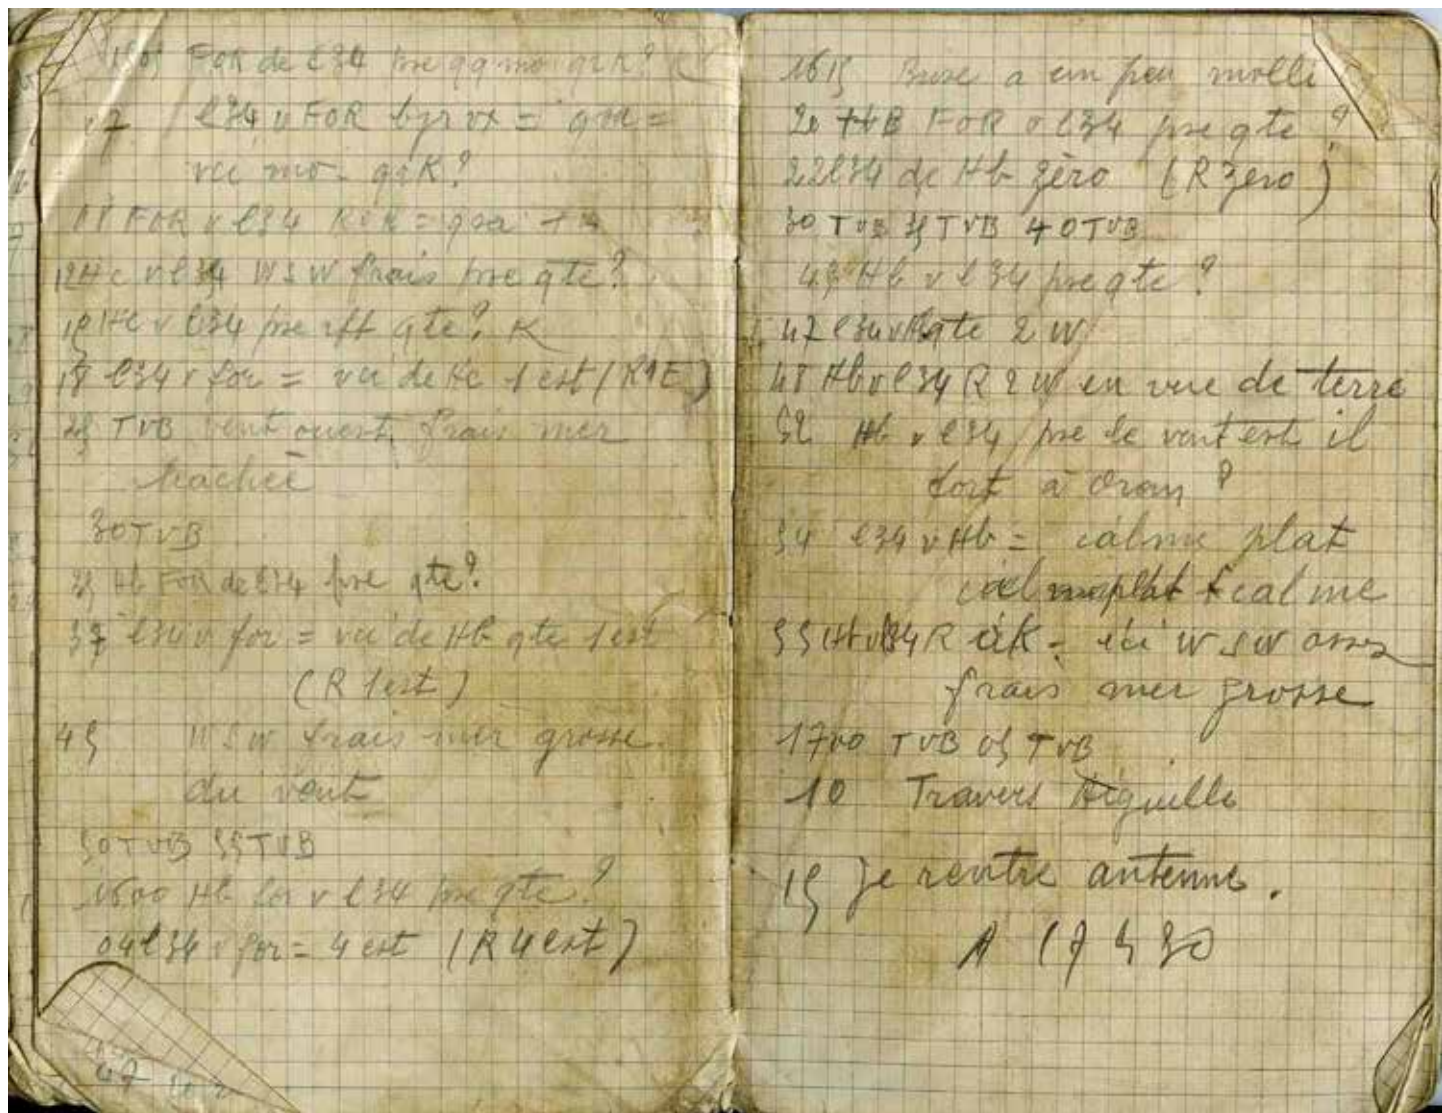 1505 FOR de l34 pse qq mo qrk? K
07 l34 v FOR bjr vx = qra =
vci mo - qrK?
FOR v l34 = qra
12 Hc v l34 WSW frais pse qte?
15 Hc v l34 pse iff qte? K
18 l34 v for = vci de Hc 1 est (R1E)
25 TVB vent ouest frais mer
hachée
30 TVB
35 Hb FOR de l34 pse qte?
37 l34 v for = vci de Hb qte 1 est
(R 1 est)
45 WSW frais mer grosse
du vent
50 TVB 55 TVB
1600 Hb for v l34 pse qte?
04 l34 v for = 4 est (R 4 est)
1615 Brise a un peu molli
20 HB FOR v l34 pse qte?
22 l34 de Hb zéro (R zéro)
30 TVB 35 TVB 40 TVB
45 Hb v l34 pse qte?
47 l34 v Hb qte 2 W
48 Hb v l34 R 2 W en vue de terre
52 Hb v l34 pse le vent est il
fort à Oran?
54 l34 v Hb = calme plat
calme plat calme
55 Hb v l34 R = ici WSW assez
frais mer grosse
1700 TVB 05 TVB
10 Travers Aiguille
15 Je rentre antenne.
A 17 h 30